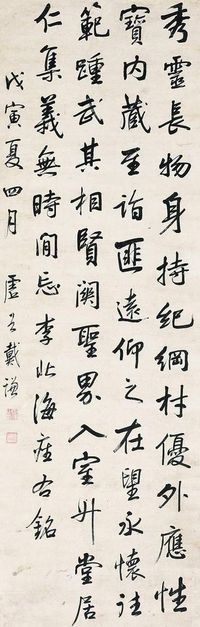 秀靈長物身持紀綱材優外應性
寶内藏至詣匪遠仰之在望永懷往
範踵武其相賢關聖界入室升堂居
仁集義無時間忘李北海座右銘
戊寅夏四月 戴